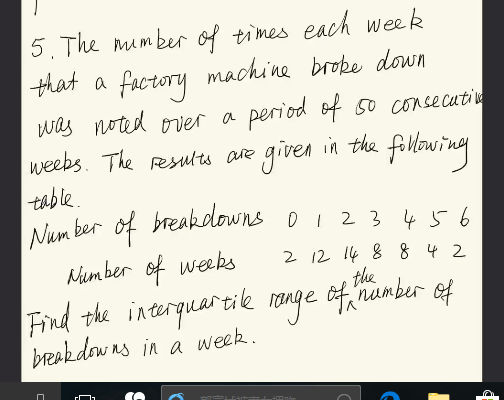 5. The number of times each week
that a factory machine broke down
was noted over a period of 50 consecutive
weeks. The results are given in the following
table.
Number of breakdowns 0 1 2 3 4 5 6
Number of weeks 2 12 14 8 8 4 2
Find the interquartile range of the number of
breakdowns in a week.